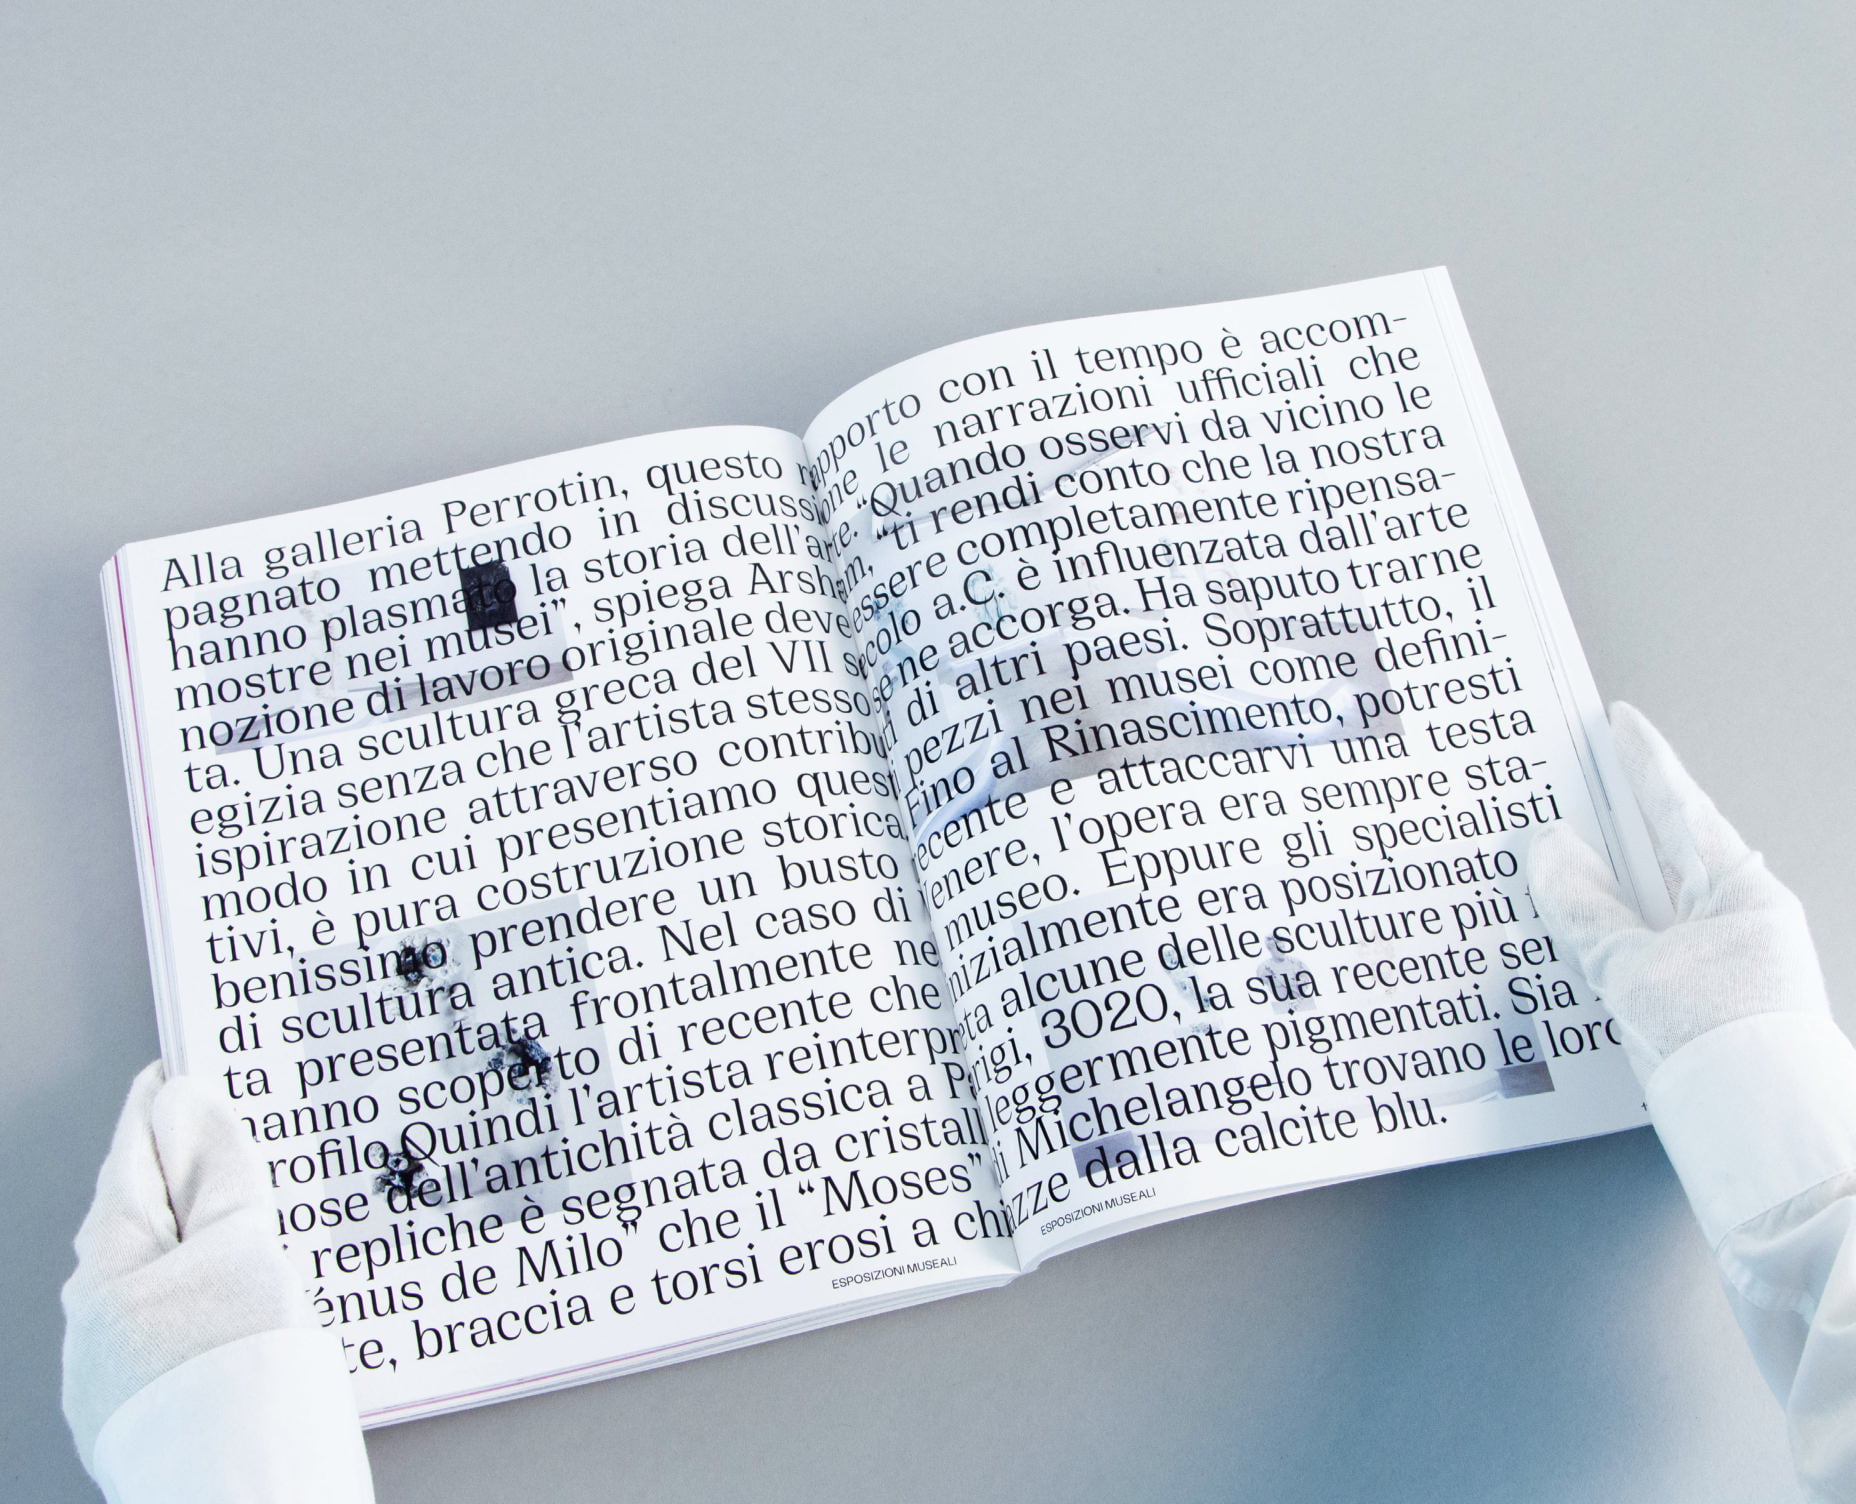 Alla galleria Perrotin, questo rapporto con il tempo è accom-
pagnato mettendo in discussione le narrazioni ufficiali che
hanno plasmato la storia dell'arte. “Quando osservi da vicino le
mostre nei musei”, spiega Arsham, “ti rendi conto che la nostra
nozione di lavoro originale deve essere completamente ripensa-
ta. Una scultura greca del VII secolo a.C. è influenzata dall'arte
egizia senza che l'artista stesso se ne accorga. Ha saputo trarne
ispirazione attraverso contributi di altri paesi. Soprattutto, il
modo in cui presentiamo questi pezzi nei musei come defini-
tivi, è pura costruzione storica. Fino al Rinascimento, potresti
benissimo prendere un busto recente e attaccarvi una testa
di scultura antica. Nel caso di Venere, l'opera era sempre sta-
ta presentata frontalmente nel museo. Eppure gli specialisti
hanno scoperto di recente che inizialmente era posizionato
rofilo Quindi l'artista reinterpreta alcune delle sculture più
mose dell'antichità classica a Parigi, 3020, la sua recente ser
repliche è segnata da cristalli leggermente pigmentati. Sia
énus de Milo” che il “Moses” di Michelangelo trovano le loro
te, braccia e torsi erosi a chiazze dalla calcite blu.
ESPOSIZIONI MUSEALI
ESPOSIZIONI MUSEALI